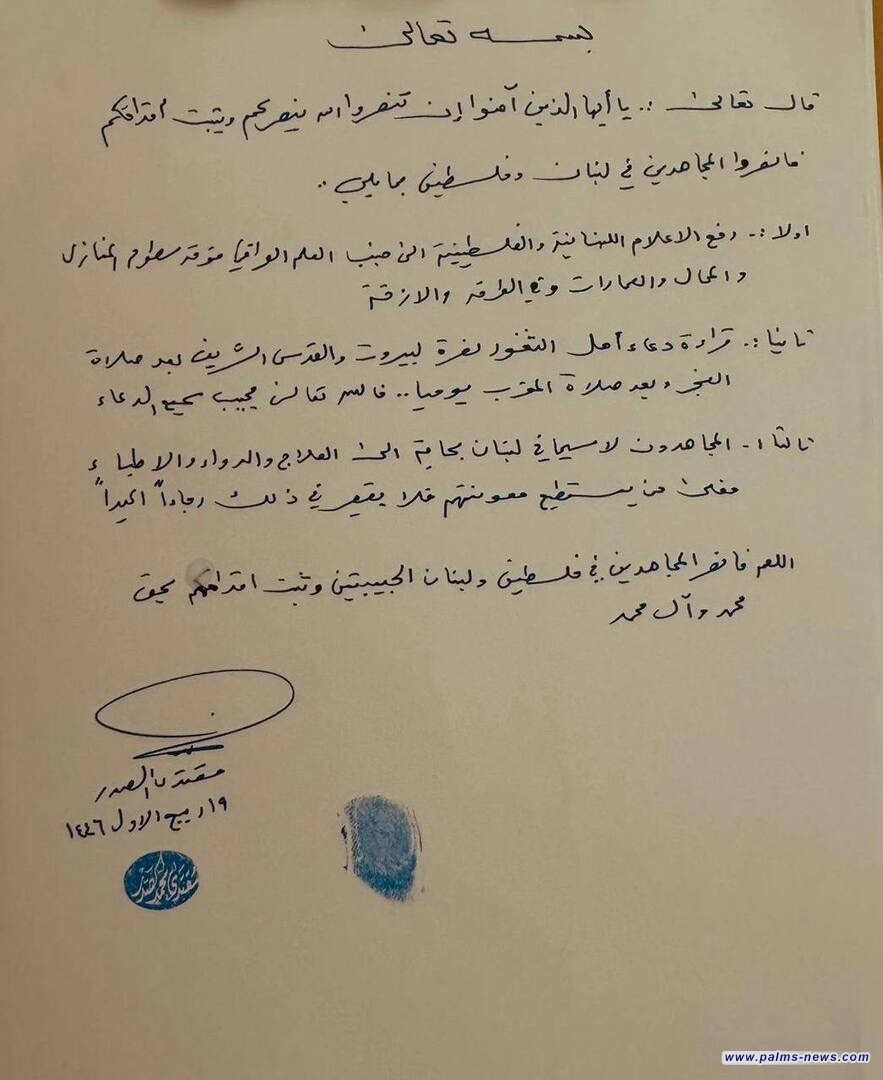 بسمه تعالى
قال تعالى :. يا أيها الذين آمنوا إن تنصروا الله ينصركم ويثبت أقدامكم
فانصروا المجاهدين في لبنان وفلسطين بما يلي ..
اولا :. رفع الاعلام اللبنانية والفلسطينية الى جنب العلم العراقي فوق سطوح المنازل
والمحال والعمارات وفي الطرق والازقة
ثانيا :. قراءة دعاء أهل الثغور نصرة لبيروت والقدس الشريف بعد صلاة
الفجر وبعد صلاة المغرب يوميا .. فالله تعالى مجيب سميع الدعاء
ثالثا :. المجاهدون لا سيما في لبنان بحاجة الى العلاج والدواء والاطباء
فعلى من يستطيع معونتهم فلا يقصر في ذلك رجاءاً اكيداً
اللهم فانصر المجاهدين في فلسطين ولبنان الحبيبتين وثبت اقدامهم بحق
محمد وآل محمد
مقتدى الصدر
١٩ ربيع الاول ١٤٤٦
مقتدى محمد الصدر
www.palms-news.com